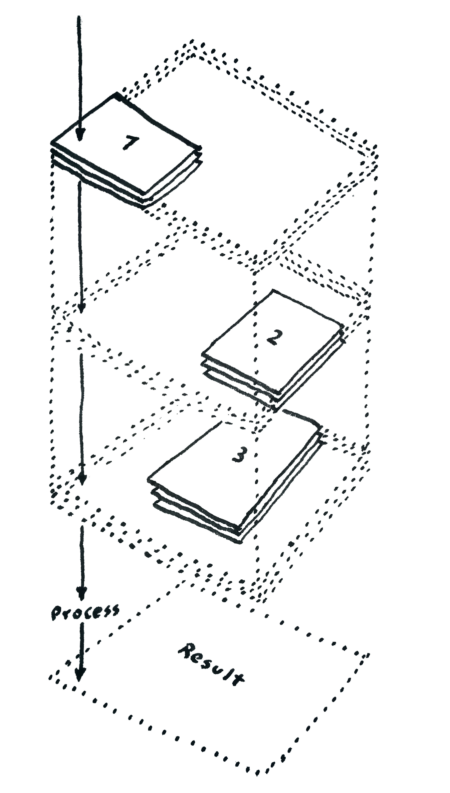 1
2
3
Process
Result